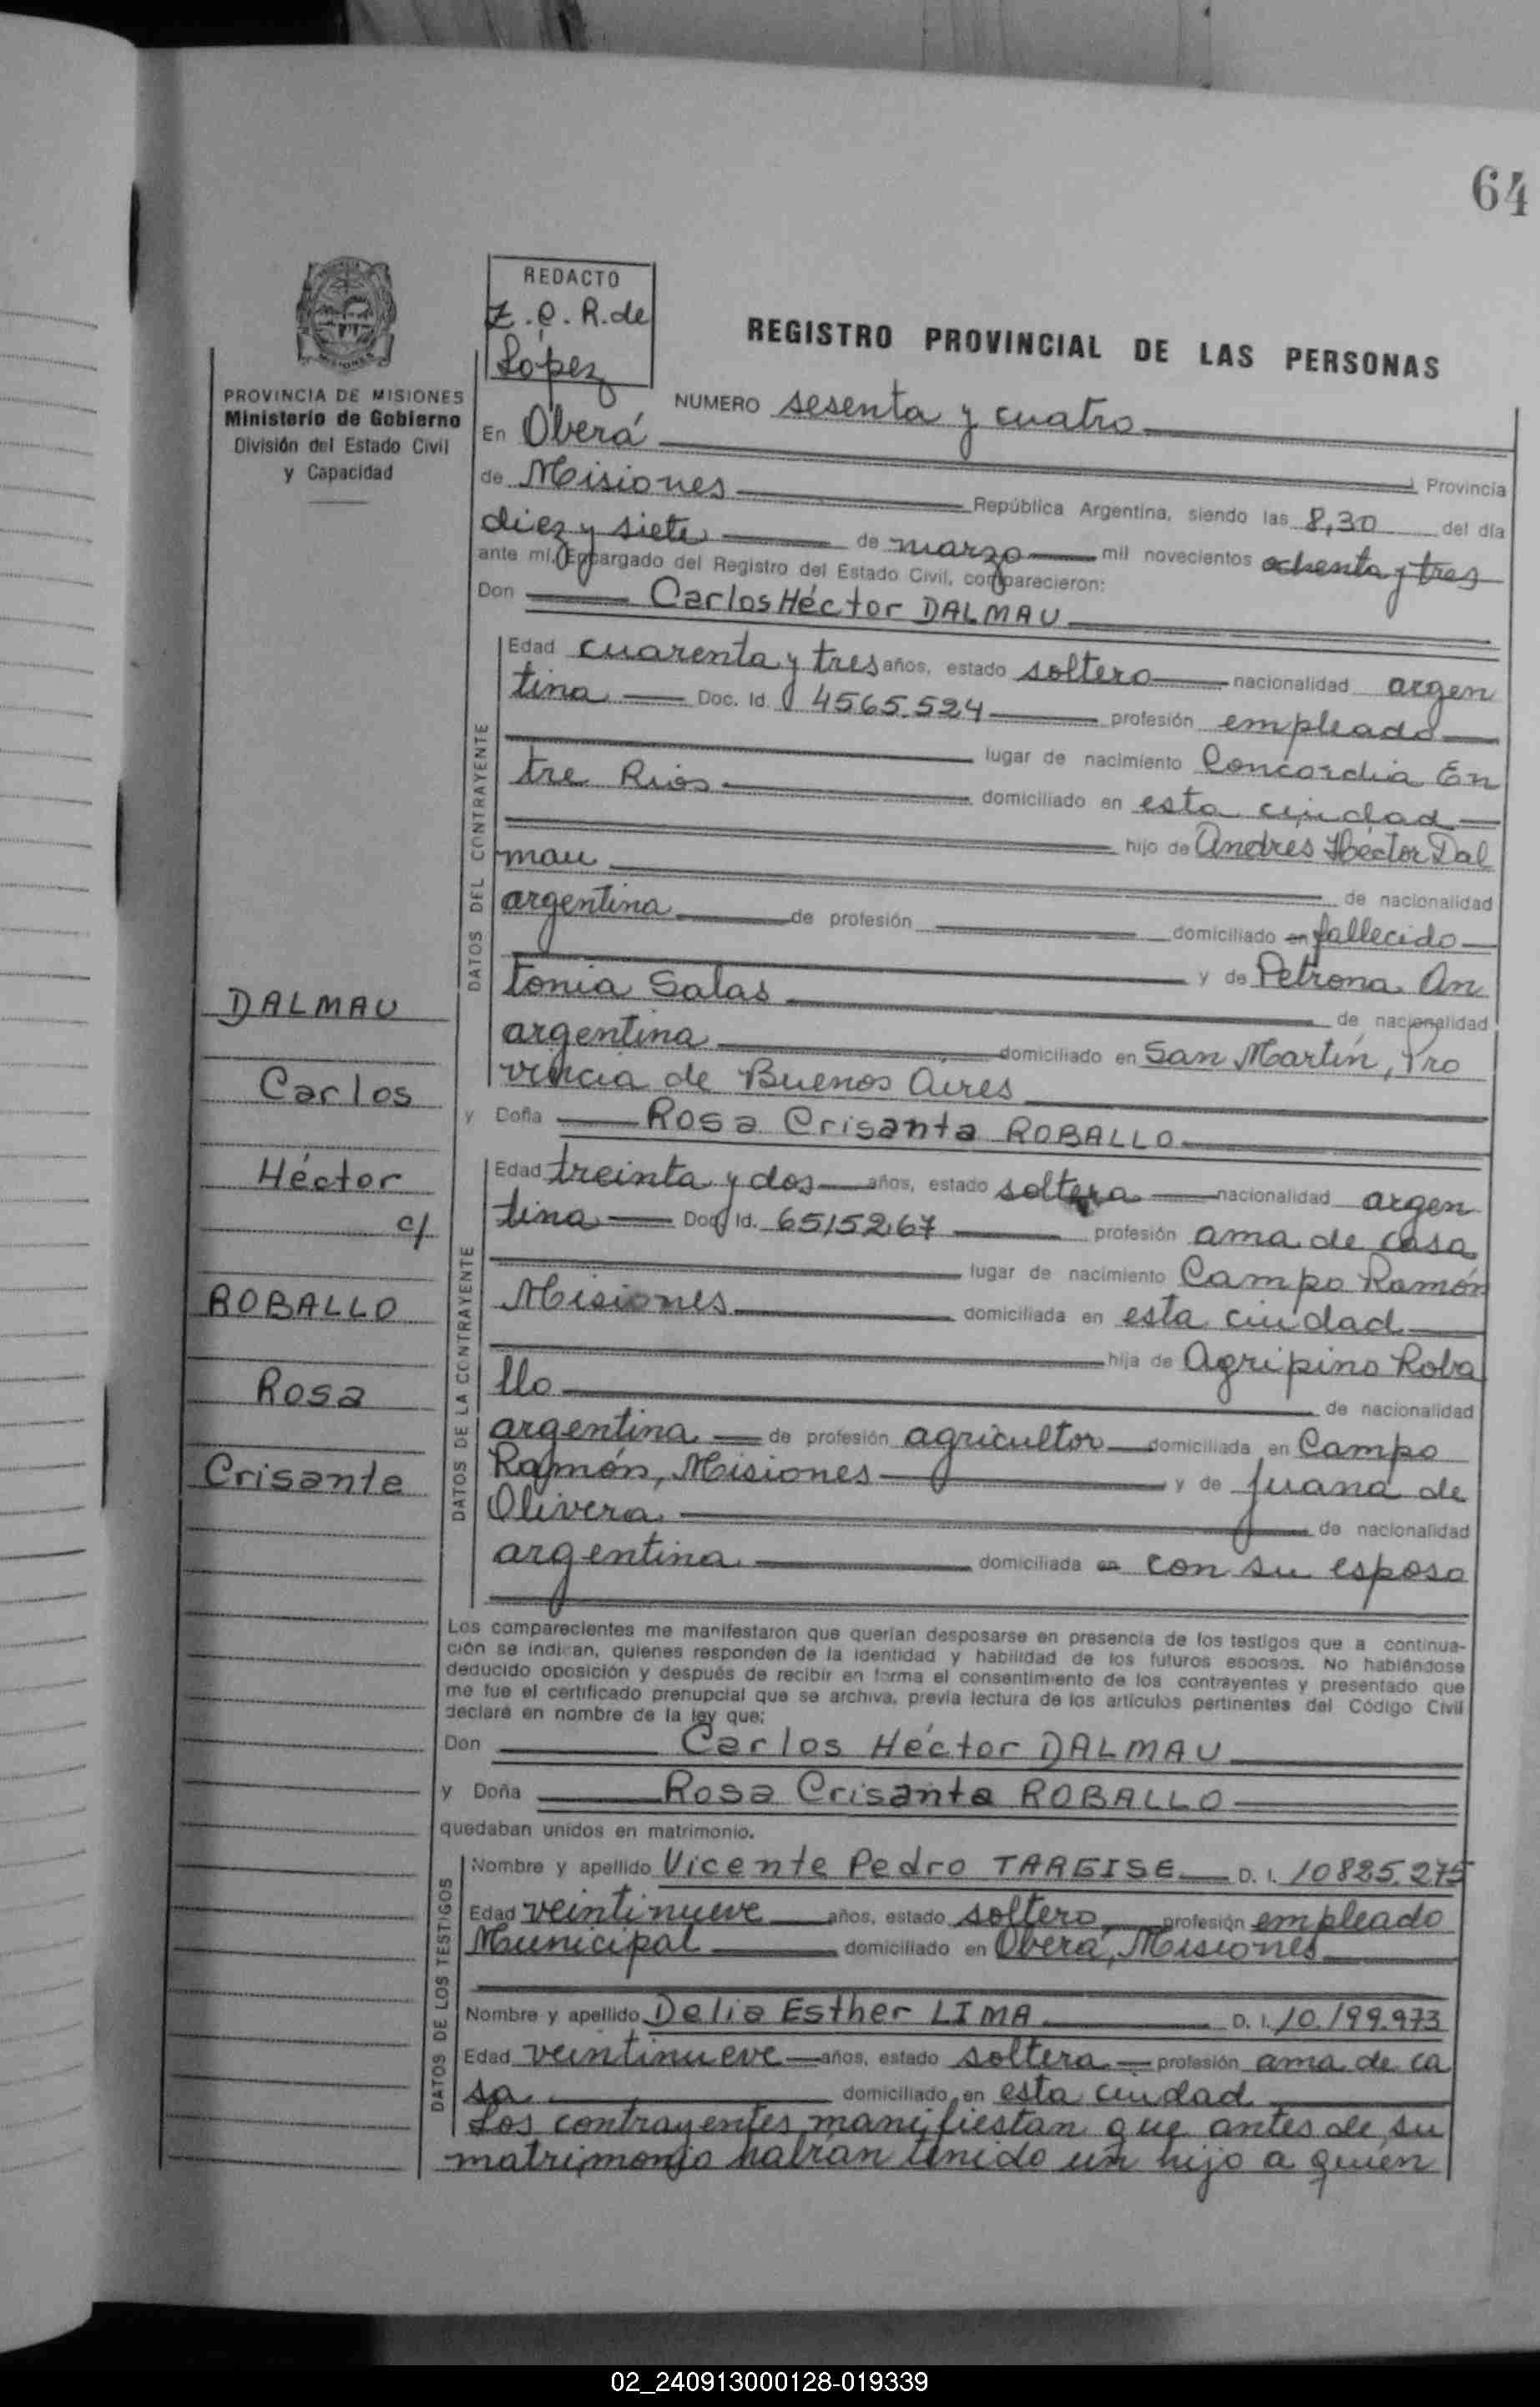 64
REDACTO
Z.E.R. de
López
REGISTRO PROVINCIAL DE LAS PERSONAS
PROVINCIA DE MISIONES
Ministerio de Gobierno
División del Estado Civil
y Capacidad
NUMERO sesenta y cuatro
En Oberá
Provincia
de Misiones República Argentina, siendo las 8,30 del día
diez y siete de marzo mil novecientos ochenta y tres
ante mí, Encargado del Registro del Estado Civil, comparecieron:
Don Carlos Héctor DALMAU
DATOS DEL CONTRAYENTE
Edad cuarenta y tres años, estado soltero nacionalidad argen
tina Doc. Id. 4565.524 profesión empleado
lugar de nacimiento Concordia En
tre Rios domiciliado en esta ciudad
hijo de Andres Héctor Dal
mau de nacionalidad
argentina de profesión domiciliado en fallecido
y de Petrona An
tonia Salas de nacionalidad
argentina domiciliado en San Martín, Pro
vincia de Buenos Aires
y Doña Rosa Crisanta ROBALLO
DATOS DE LA CONTRAYENTE
Edad treinta y dos años, estado soltera nacionalidad argen
tina Doc. Id. 6515267 profesión ama de casa
lugar de nacimiento Campo Ramón
Misiones domiciliada en esta ciudad
hija de Agripino Roba
llo de nacionalidad
argentina de profesión agricultor domiciliada en Campo
Ramón, Misiones y de Juana de
Olivera de nacionalidad
argentina domiciliada en con su esposo
DALMAU
Carlos
Héctor
c/
ROBALLO
Rosa
Crisante
Los comparecientes me manifestaron que querían desposarse en presencia de los testigos que a continua-
ción se indican, quienes responden de la identidad y habilidad de los futuros esposos. No habiéndose
deducido oposición y después de recibir en forma el consentimiento de los contrayentes y presentado que
me fue el certificado prenupcial que se archiva, previa lectura de los artículos pertinentes del Código Civil
declaré en nombre de la ley que:
Don Carlos Héctor DALMAU
y Doña Rosa Crisanta ROBALLO
quedaban unidos en matrimonio.
DATOS DE LOS TESTIGOS
Nombre y apellido Vicente Pedro TARGISE D. I. 10825.275
Edad veintinueve años, estado soltero profesión empleado
Municipal domiciliado en Oberá, Misiones
Nombre y apellido Delia Esther LIMA D. I. 10.199.973
Edad veintinueve años, estado soltera profesión ama de ca
sa domiciliado en esta ciudad
Los contrayentes manifiestan que antes de su
matrimonio habían tenido un hijo a quien
02_240913000128-019339